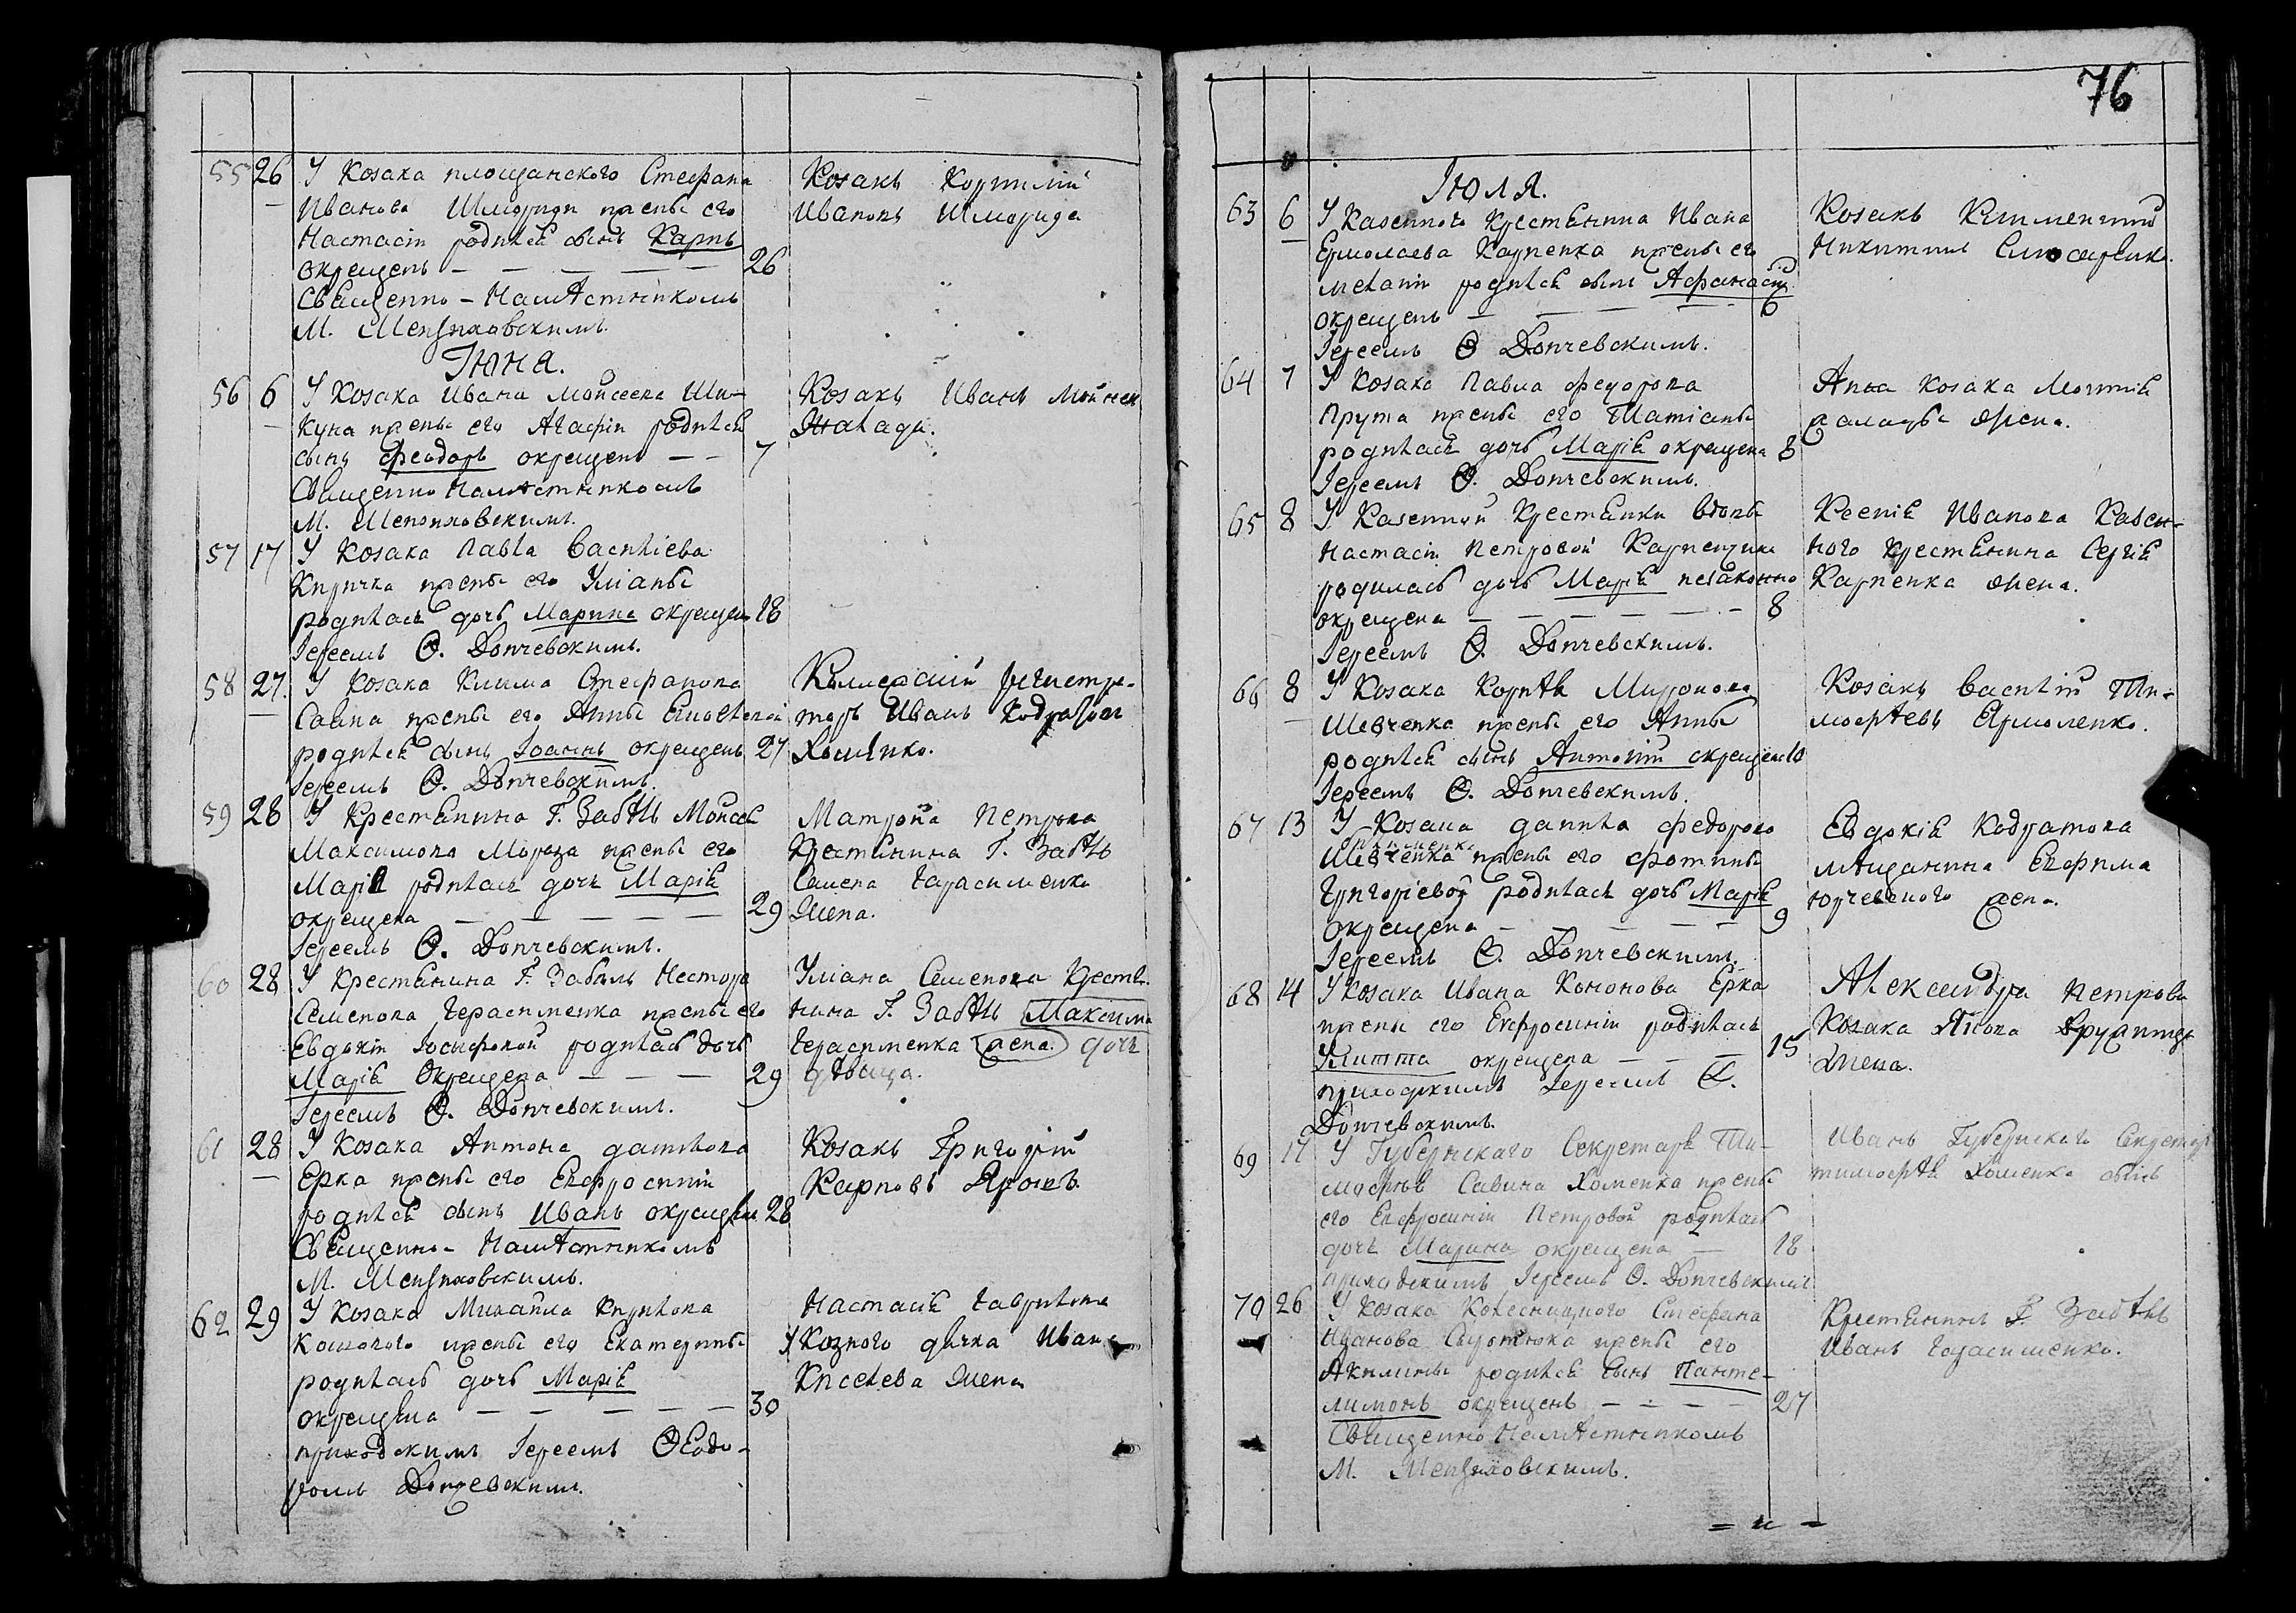 76
55 26 У Козака площанского Стефана
Иванова Шмориди жены его
Настасіи родился сынъ Карпъ
окрещенъ — — — — — 26
Священно-Намѣстникомъ
М. Менжиховскимъ.
Козакъ Корнилій
Ивановъ Шморида
Іюня.
56 6 У Козака Ивана Мойсеева Ши-
куна жены его Агафіи родился
сынъ Феодоръ окрещенъ — — 7
Священно Намѣстникомъ
М. Менжиховскимъ.
Козакъ Иванъ
57 17 У Козака Павла Василіева
Киричка жены его Уліаны
родилась дочь Марина окрещена 18
Іереемъ Ѳ. Дончевскимъ.
58 27. У Козака Клима Стефанова
Савина жены его Анны
родился сынъ Іоаннъ окрещенъ 27
Іереемъ Ѳ. Дончевскимъ.
Коллежскій регистра-
торъ Иванъ Кодратов
Хоменко.
59 28 У Крестянина Г. Забѣлъ Мойсея
Максимова Мороза жены его
Маріи родилась дочь Марія
окрещена — — — — — 29
Іереемъ Ѳ. Дончевскимъ.
Матрона Петрова
Крестянина Г. Забѣлъ
Семена Гарасименка
жена.
60 28 У Крестянина Г. Забѣлъ Нестора
Семенова Герасименка жены его
Евдокіи Іосифовой родилась дочь
Марія Окрещена — — — 29
Іереемъ Ѳ. Дончевскимъ.
Уліана Семенова Крестя-
нина Г. Забѣлъ Максима
Герасименка жена. дочь
дѣвица.
61 28 У Козака Антона Данилова
Ерка жены его Евфросиніи
родился сынъ Иванъ окрещенъ 28
Священно-Намѣстникомъ
М. Менжиховскимъ.
Козакъ Григорій
Карповъ Ярошъ
62 29 У Козака Михайла Кирилова
Кошового жены его Екатерины
родилась дочь Марія
окрещена — — — — — 30
приходскимъ Іереемъ Ѳеодо-
ромъ Дончевскимъ.
Настасія Гаврилова
дячка Ивана
Киселева жена
Іюля.
63 6 У Казенного Крестянина Ивана
Ермолаева Карпенка жены его
Меланіи родился сынъ Афанасій
окрещенъ — — — — 6
Іереемъ Ѳ Дончевскимъ.
Козакъ Климентій
Никитинъ Слюсаренко.
64 7 У Козака Павла Федорова
Прута жены его Татіаны
родилась дочь Марія окрещена 8
Іереемъ Ѳ. Дончевскимъ.
Анна Козака
жена.
65 8 У Казенной Крестянки вдовы
Настасіи Петровой Карпенчихи
родилась дочь Марія незаконно
окрещена — — — — — 8
Іереемъ Ѳ. Дончевскимъ.
Ксенія Иванова Казен-
ного Крестянина Сергія
Карпенка жена.
66 8 У Козака Корнѣя Миронова
Шевченка жены его Анны
родился сынъ Антоній окрещенъ 10
Іереемъ Ѳ. Дончевскимъ.
Козакъ Василій Ти-
мофѣевъ Ярмоленко.
67 13 У Козака Данила Федорова
Шевченка жены его Фотины
Григоріевой родилась дочь Марія
окрещена — — — — — 9
Іереемъ Ѳ. Дончевскимъ.
Евдокія Кодратова
мѣщанина Евфима
Юрчевского жена.
68 14 У Козака Ивана Кононова Ерка
жены его Евфросиніи родилась
Улитта окрещена — — — 15
приходскимъ Іереемъ Ѳ.
Дончевскимъ.
Александра Петрова
Козака Якова
жена.
69 17 У Губернскаго Секретаря Ти-
мофѣя Савина Хоменка жены
его Евфросиніи Петровой родилась
дочь Марина окрещена — 18
приходскимъ Іереемъ Ѳ. Дончевскимъ
Иванъ Губернскаго Секретаря
Тимофѣя Хоменка сынъ
70 26 У Козака Колесницкого Стефана
Иванова жены его
Акилины родился сынъ Панте-
лимонъ окрещенъ — — — — 27
Священно Намѣстникомъ
М. Менжиховскимъ.
Крестянинъ Г. Забѣлъ
Иванъ Гарасименко.